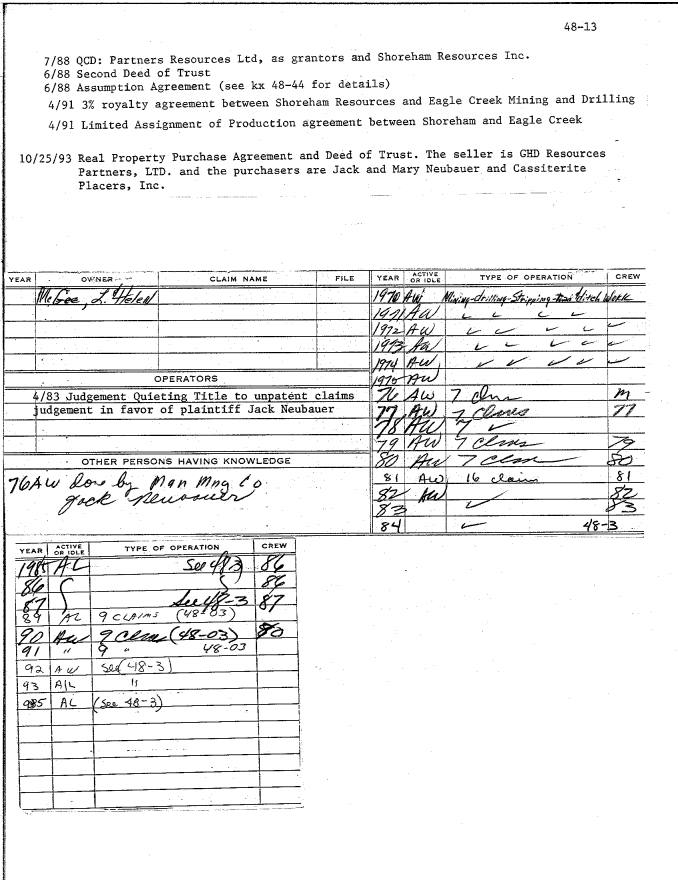 48-13
7/88 QCD: Partners Resources Ltd, as grantors and Shoreham Resources Inc.
6/88 Second Deed of Trust
6/88 Assumption Agreement (see kx 48-44 for details)
4/91 3% royalty agreement between Shoreham Resources and Eagle Creek Mining and Drilling
4/91 Limited Assignment of Production agreement between Shoreham and Eagle Creek
10/25/93 Real Property Purchase Agreement and Deed of Trust. The seller is GHD Resources
Partners, LTD. and the purchasers are Jack and Mary Neubauer and Cassiterite
Placers, Inc.
YEAR OWNER CLAIM NAME FILE
McGee, L. Helen
OPERATORS
4/83 Judgement Quieting Title to unpatent claims
judgement in favor of plaintiff Jack Neubauer
OTHER PERSONS HAVING KNOWLEDGE
76AW done by Man Mng Co
Jack Neubauer
YEAR ACTIVE OR IDLE TYPE OF OPERATION CREW
1970 AW Mining-drilling-Stripping ditch Work
1971 AW ✓ ✓ ✓ ✓
1972 AW ✓ ✓ ✓ ✓ ✓
1973 AW ✓ ✓ ✓ ✓ ✓
1974 AW ✓ ✓ ✓ ✓ ✓
1975 AW
76 AW 7 Clms M
77 AW 7 Clms 77
78 AW 7 ✓
79 AW 7 Clms 79
80 AW 7 Clm 80
81 AW 16 claim 81
82 AW 82
83 ✓ 83
84 ✓ 48-3
YEAR ACTIVE OR IDLE TYPE OF OPERATION CREW
1985 AL See 48-3 86
86 86
87 See 48-3 87
89 AL 9 CLAIMS (48-03)
90 AW 9 Clms (48-03) 90
91 " 9 " 48-03
92 AW See (48-3)
93 A/L "
985 AL (See 48-3)